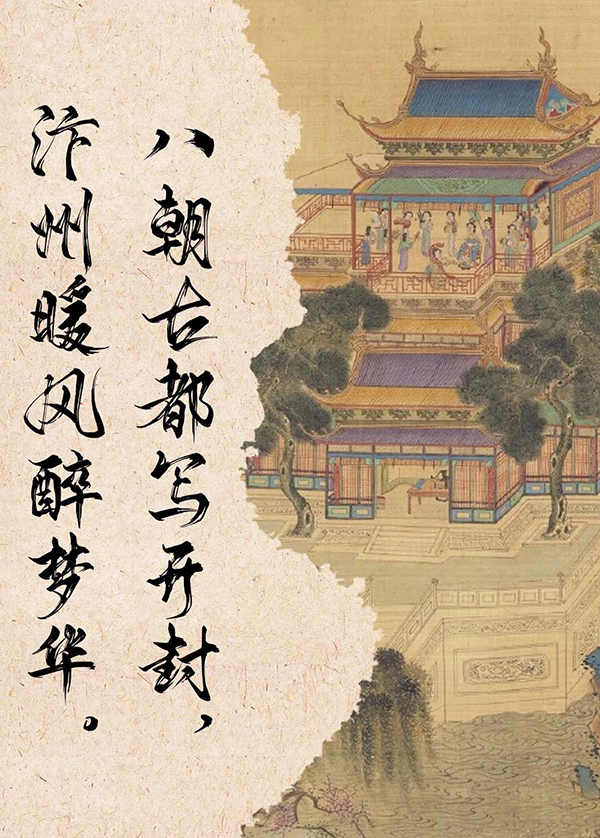 八朝古都写开封，
汴州暖风醉梦华。